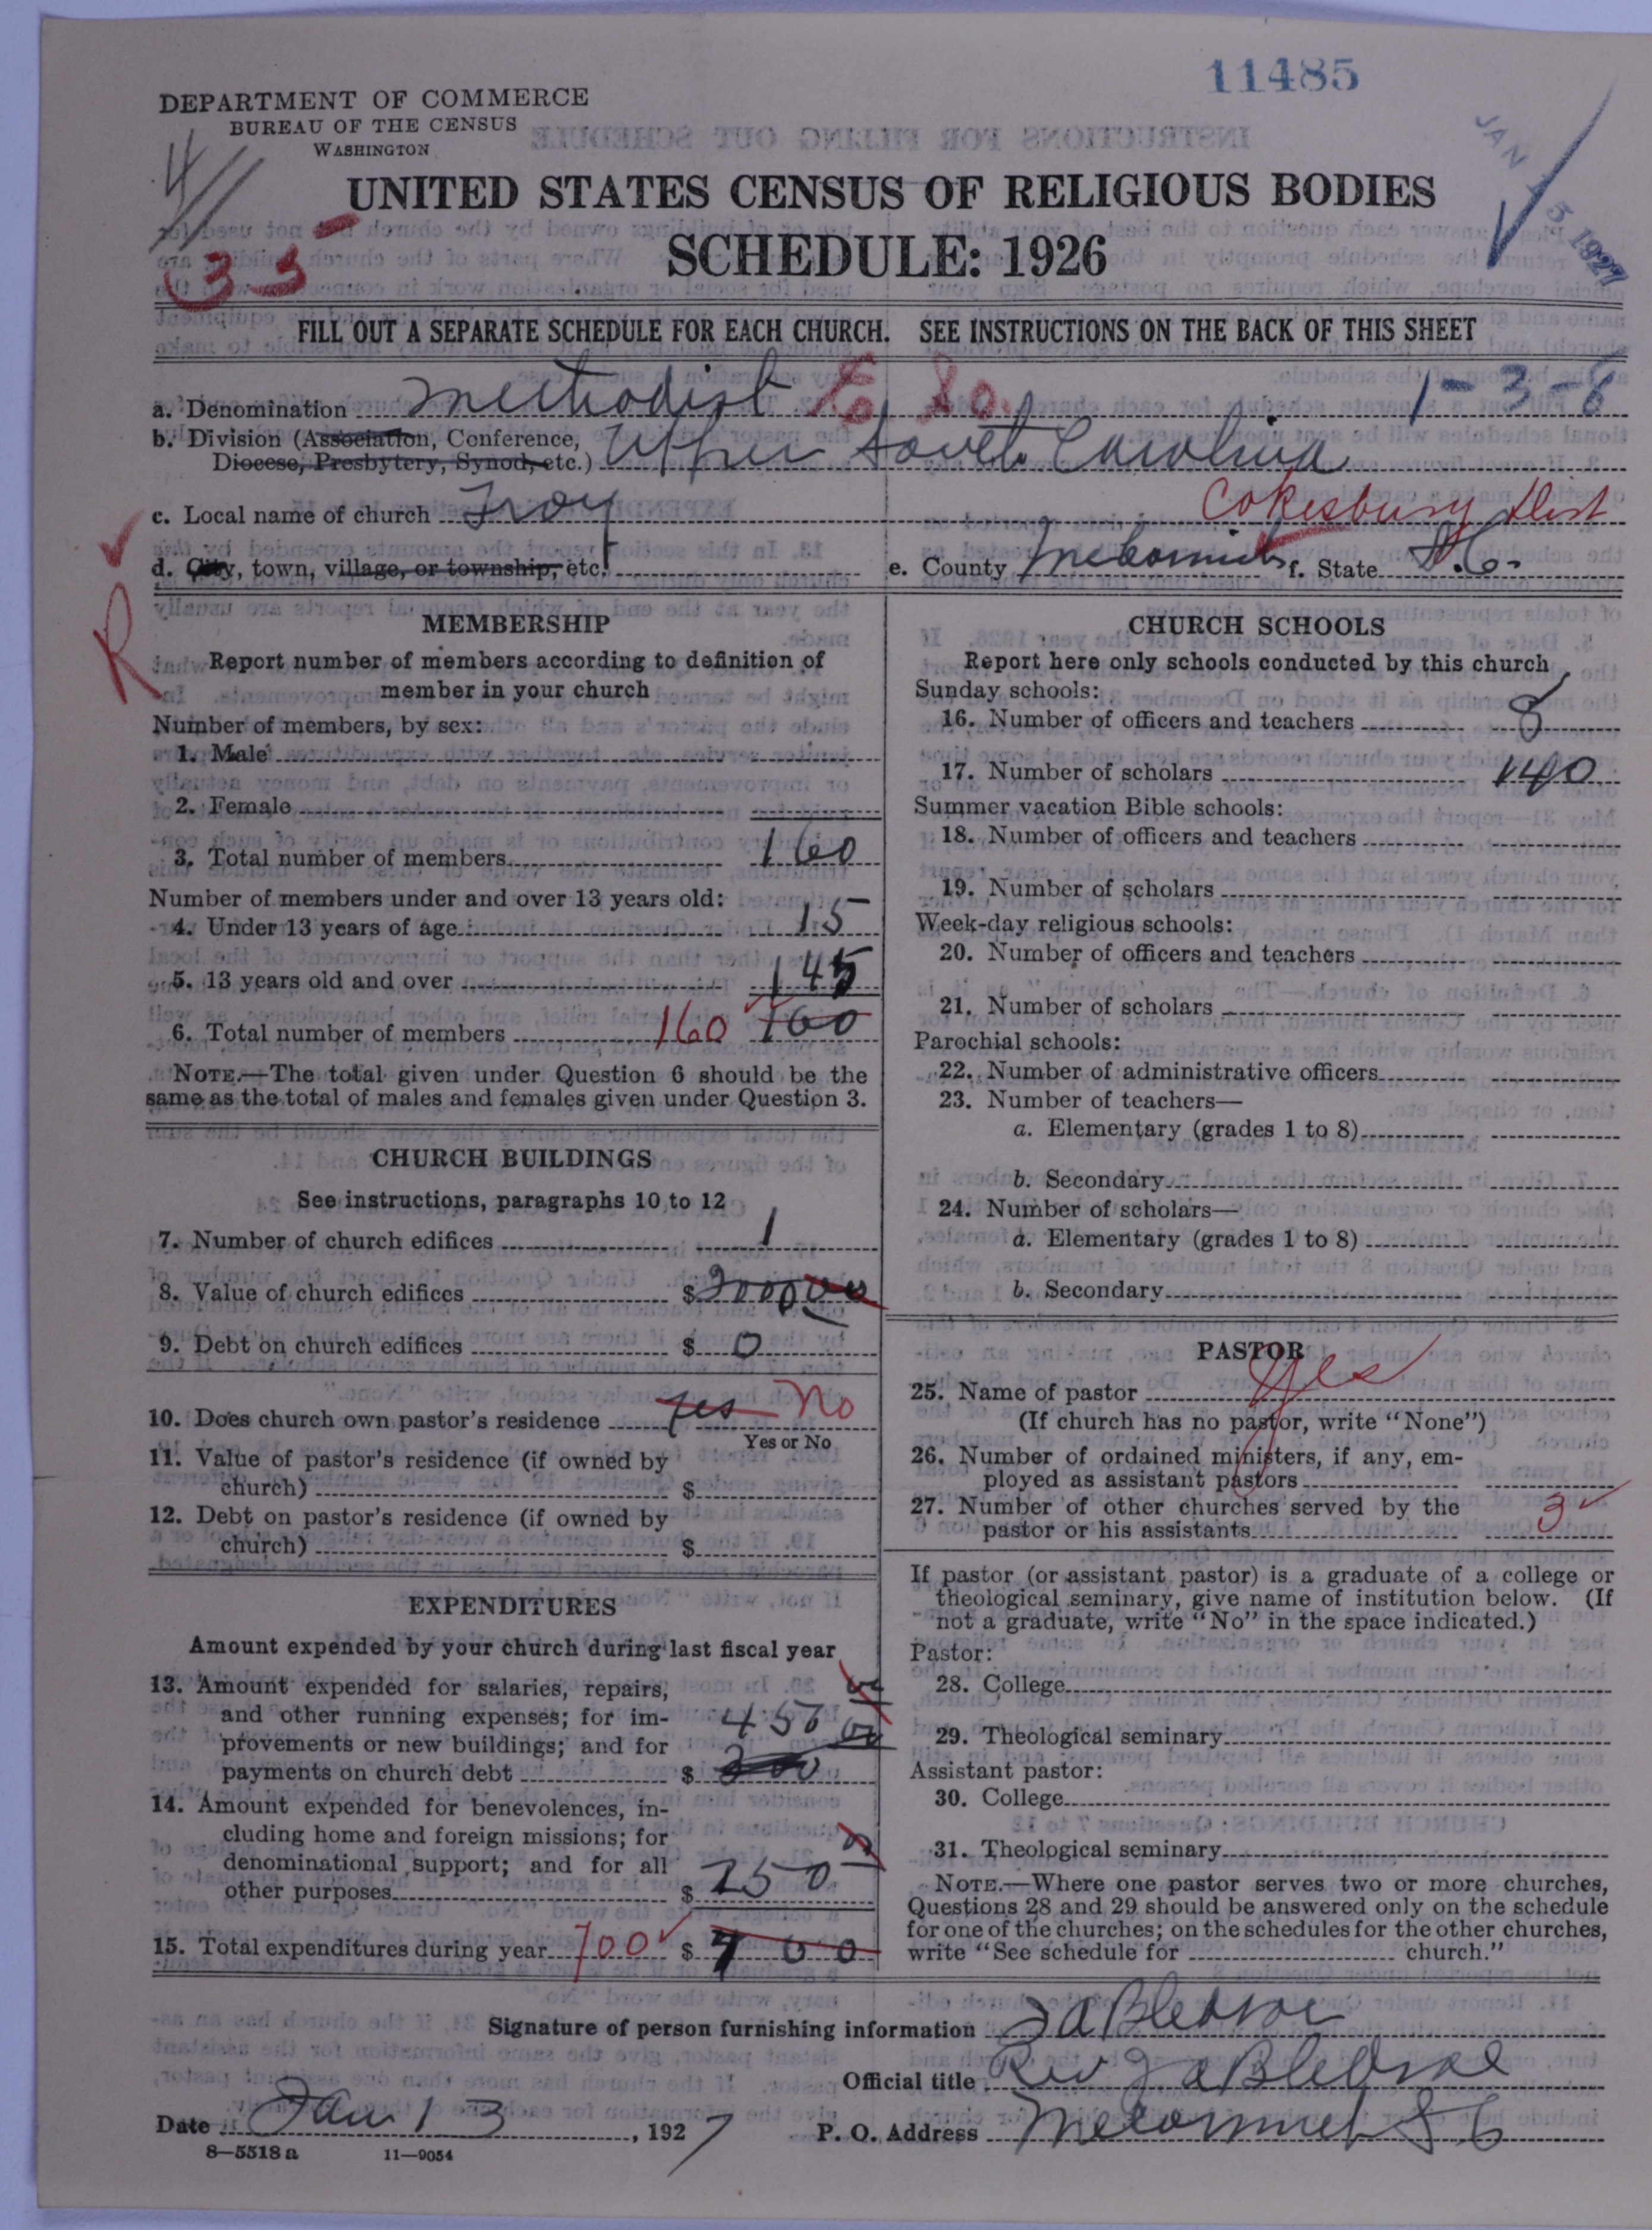 11485
DEPARTMENT OF COMMERCE
BUREAU OF THE CENSUS
WASHINGTON
JAN 15 1927
UNITED STATES CENSUS OF RELIGIOUS BODIES
SCHEDULE: 1926
35
FILL OUT A SEPARATE SCHEDULE FOR EACH CHURCH. SEE INSTRUCTIONS ON THE BACK OF THIS SHEET
a. Denomination Methodist E. So. 1-3-6
b. Division (Association, Conference,
Diocese, Presbytery, Synod, etc.) Upper South Carolina
c. Local name of church Troy Cokesbury Dist
d. City, town, village, or township, etc. e. County McCormick f. State S.C.
R
MEMBERSHIP
Report number of members according to definition of
member in your church
Number of members, by sex:
1. Male
2. Female
3. Total number of members 160
Number of members under and over 13 years old:
4. Under 13 years of age 15
5. 13 years old and over 145
6. Total number of members 160 160
NOTE.—The total given under Question 6 should be the
same as the total of males and females given under Question 3.
CHURCH BUILDINGS
See instructions, paragraphs 10 to 12
7. Number of church edifices 1
8. Value of church edifices $ 2000 00
9. Debt on church edifices $ 0
10. Does church own pastor's residence Yes No
Yes or No
11. Value of pastor's residence (if owned by
church) $
12. Debt on pastor's residence (if owned by
church) $
EXPENDITURES
Amount expended by your church during last fiscal year
13. Amount expended for salaries, repairs,
and other running expenses; for im- 450
provements or new buildings; and for
payments on church debt $
14. Amount expended for benevolences, in-
cluding home and foreign missions; for
denominational support; and for all
other purposes $ 250
15. Total expenditures during year 700 $ 700
CHURCH SCHOOLS
Report here only schools conducted by this church
Sunday schools:
16. Number of officers and teachers 8
17. Number of scholars 140
Summer vacation Bible schools:
18. Number of officers and teachers
19. Number of scholars
Week-day religious schools:
20. Number of officers and teachers
21. Number of scholars
Parochial schools:
22. Number of administrative officers
23. Number of teachers—
a. Elementary (grades 1 to 8)
b. Secondary
24. Number of scholars—
a. Elementary (grades 1 to 8)
b. Secondary
PASTOR
25. Name of pastor yes
(If church has no pastor, write "None")
26. Number of ordained ministers, if any, em-
ployed as assistant pastors
27. Number of other churches served by the
pastor or his assistants 3
If pastor (or assistant pastor) is a graduate of a college or
theological seminary, give name of institution below. (If
not a graduate, write "No" in the space indicated.)
Pastor:
28. College
29. Theological seminary
Assistant pastor:
30. College
31. Theological seminary
NOTE.—Where one pastor serves two or more churches,
Questions 28 and 29 should be answered only on the schedule
for one of the churches; on the schedules for the other churches,
write "See schedule for church."
Signature of person furnishing information J A Bledsoe
Official title Rev J A Bledsoe
Date Jan 13, 1927 P. O. Address McCormick S C
8—5518 a 11—9054